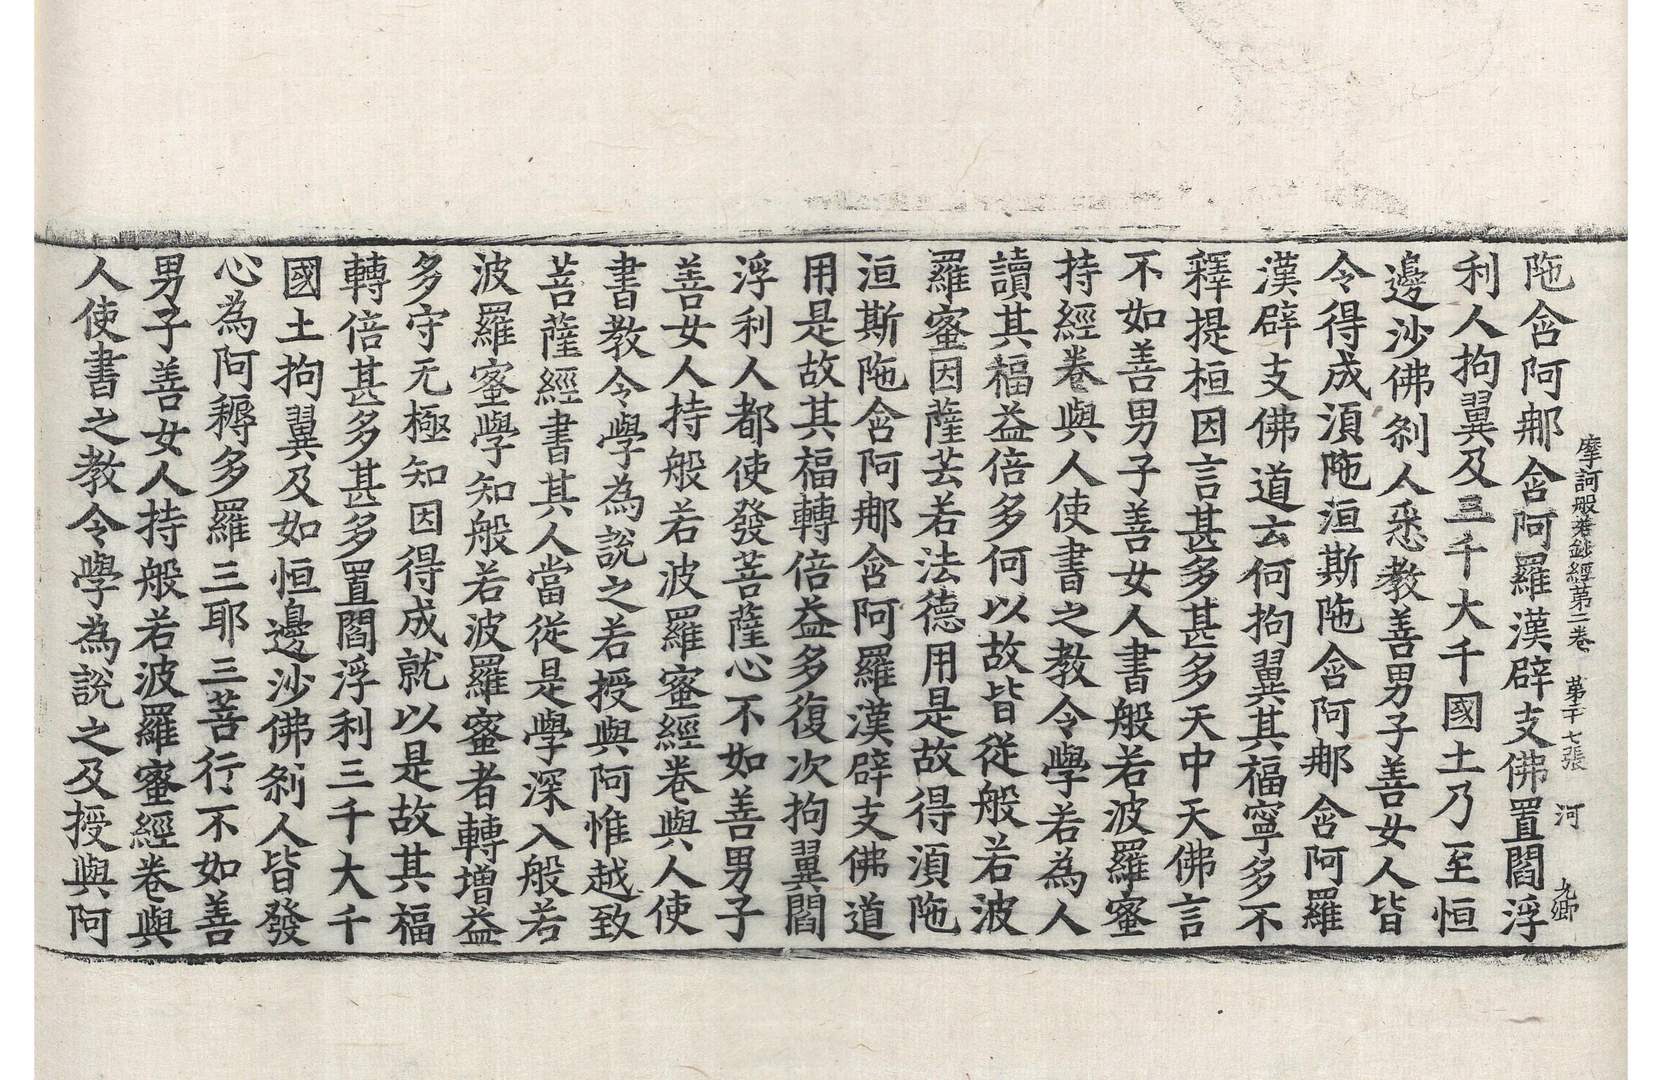 摩訶般若鈔經第二卷 第十七張 河 光鄉
陁含阿那含阿羅漢辟支佛置閻浮
利人拘翼及三千大千國土乃至恒
邊沙佛剎人悉教善男子善女人皆
令得成湏陁洹斯陁含阿那含阿羅
漢辟支佛道云何拘翼其福寧多不
釋提桓因言甚多甚多天中天佛言
不如善男子善女人書般若波羅蜜
持經卷與人使書之教令學若為人
讀其福益倍多何以故皆從般若波
羅蜜因薩芸若法德用是故得湏陁
洹斯陁含阿那含阿羅漢辟支佛道
用是故其福轉倍益多復次拘翼閻
浮利人都使發菩薩心不如善男子
善女人持般若波羅蜜經卷與人使
書教令學為說之若授與阿惟越致
菩薩經書其人當從是學深入般若
波羅蜜學知般若波羅蜜者轉增益
多守无極知因得成就以是故其福
轉倍甚多甚多置閻浮利三千大千
國土拘翼及如恒邊沙佛剎人皆發
心為阿耨多羅三耶三菩行不如善
男子善女人持般若波羅蜜經卷與
人使書之教令學為說之及授與阿